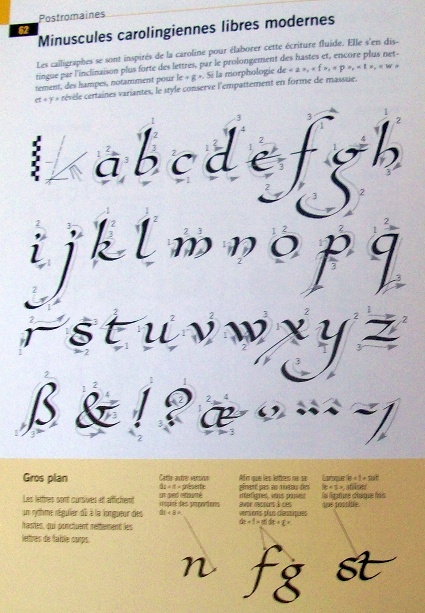 Postromaines
62
Minuscules carolingiennes libres modernes
Les calligraphes se sont inspirés de la caroline pour élaborer cette écriture fluide. Elle s'en dis-
tingue par l'inclinaison plus forte des lettres, par le prolongement des hastes et, encore plus net-
tement, des hampes, notamment pour le « g ». Si la morphologie de « a », « f », « p », « t », « w »
et « y » révèle certaines variantes, le style conserve l'empattement en forme de massue.
a b c d e f g h
i j k l m n o p q
r s t u v w x y z
ß & ! ? æ
Gros plan
Les lettres sont cursives et affichent
un rythme régulier dû à la longueur des
hastes, qui ponctuent nettement les
lettres de faible corps.
Cette autre version
du « n » présente
un pied retourné
inspiré des proportions
du « a ».
Afin que les lettres ne se
gênent pas au niveau des
interlignes, vous pouvez
avoir recours à ces
versions plus classiques
de « f » et de « g ».
Lorsque le « t » suit
le « s », utilisez
la ligature chaque fois
que possible.
n fg st